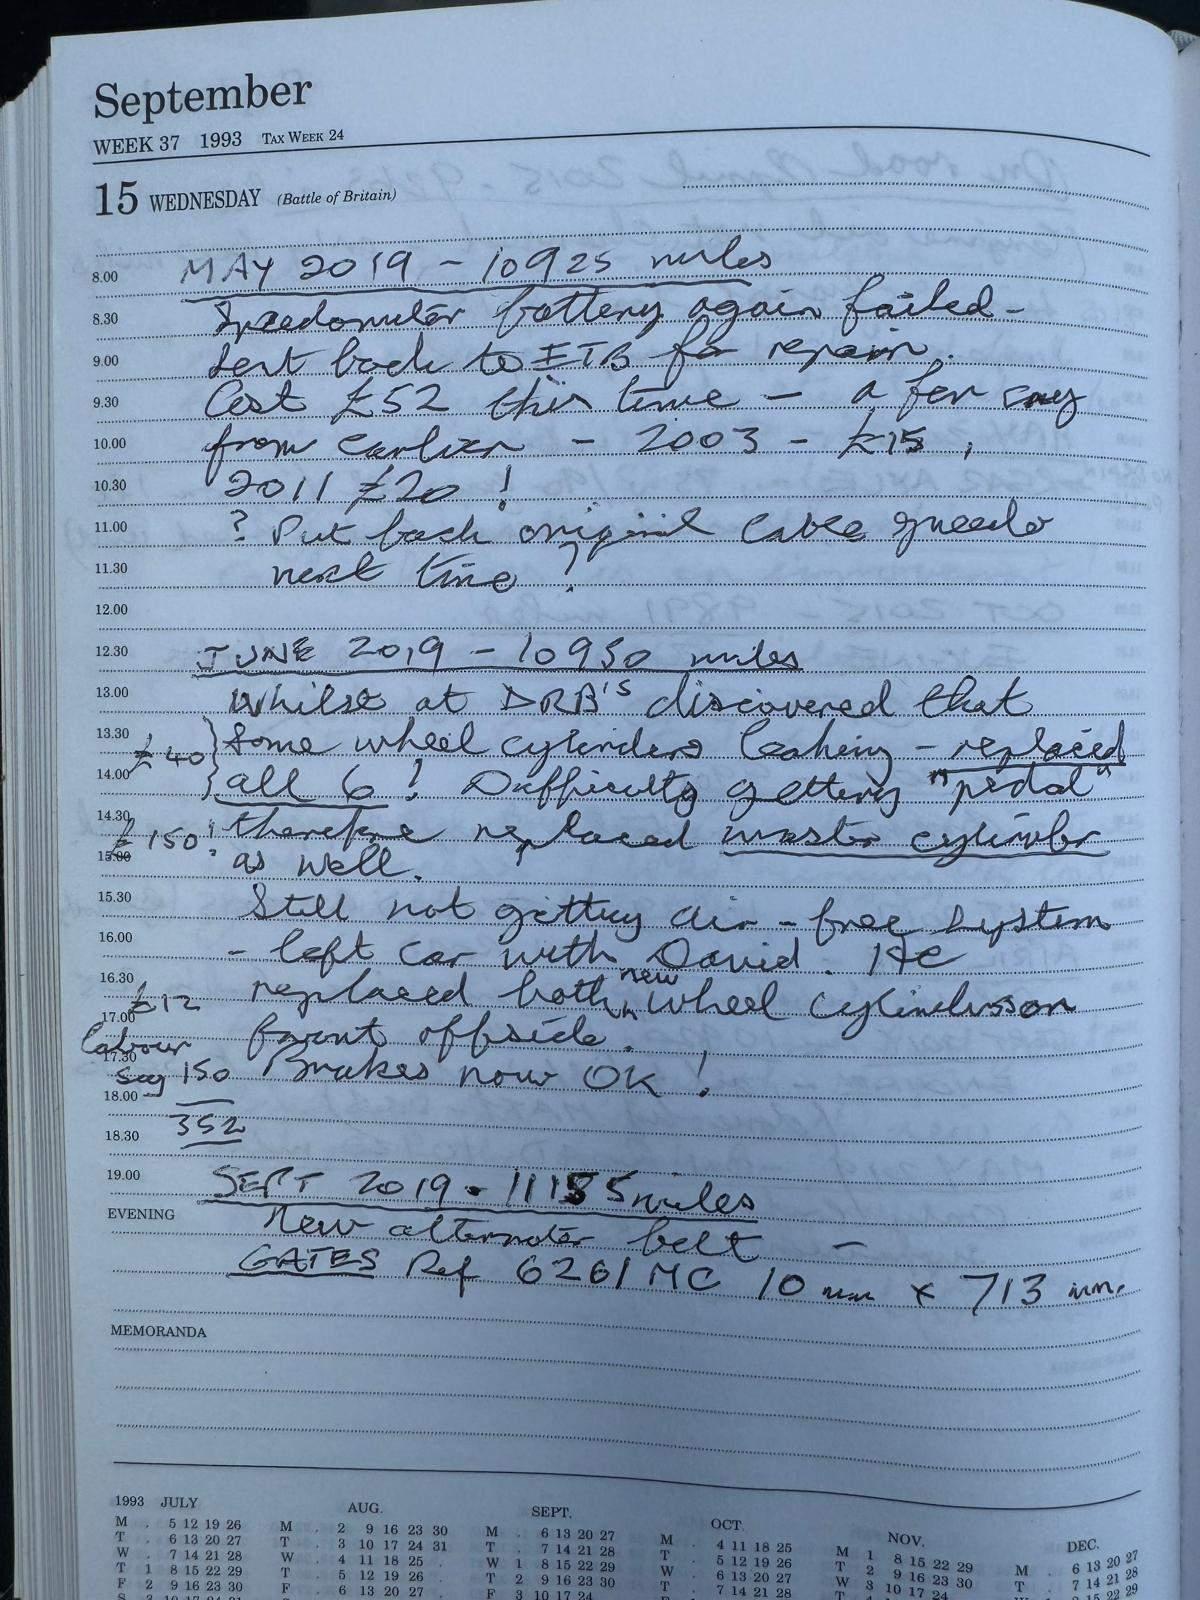 September
WEEK 37 1993 TAX WEEK 24
15 WEDNESDAY (Battle of Britain)
8.00 MAY 2019 - 10925 miles
8.30 Speedometer battery again failed -
9.00 Sent back to ETB for repair.
9.30 Cost £52 this time - a far cry
10.00 from earlier - 2003 - £15,
10.30 2011 £20 !
11.00 ? Put back original cable speedo
11.30 next time ?
12.00
12.30 JUNE 2019 - 10950 miles
13.00 Whilst at DRB's discovered that
13.30 £40 } some wheel cylinders leaking - replaced
14.00 all 6 ! Difficulty getting "pedal"
14.30 £150! therefore replaced master cylinder
15.00 as well.
15.30 Still not getting air-free system
16.00 - left car with David. He
16.30 replaced both new wheel cylinders on
£12
17.00 front offside.
labour
17.30 say 150 Brakes now OK !
18.00
352
18.30
19.00 SEPT 2019 - 11185 miles
EVENING New alternator belt -
GATES Ref 6261MC 10 mm x 713 mm.
MEMORANDA
1993 JULY AUG. SEPT. OCT. NOV. DEC.
M . 5 12 19 26 M . 2 9 16 23 30 M . 6 13 20 27 M . 4 11 18 25 M 1 8 15 22 29 M . 6 13 20 27
T . 6 13 20 27 T . 3 10 17 24 31 T . 7 14 21 28 T . 5 12 19 26 T 2 9 16 23 30 T . 7 14 21 28
W . 7 14 21 28 W . 4 11 18 25 . W 1 8 15 22 29 W . 6 13 20 27 W 3 10 17 24 W 1 8 15 22 29
T 1 8 15 22 29 T . 5 12 19 26 . T 2 9 16 23 30 T . 7 14 21 28
F 2 9 16 23 30 F . 6 13 20 27 F 3 10 17 24